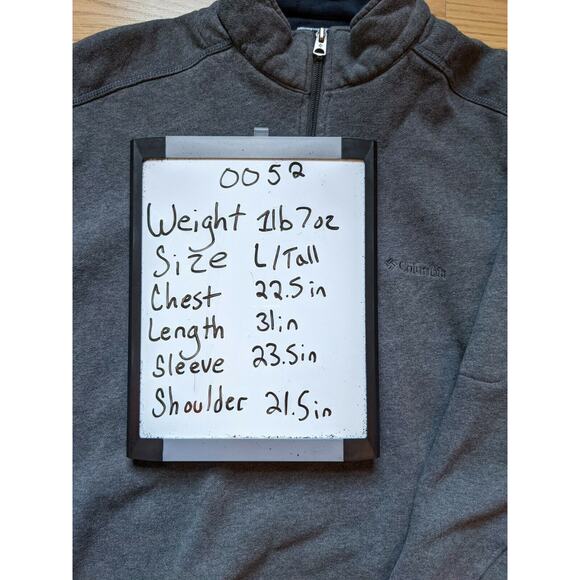 0052
Weight 1lb 7oz
Size L/Tall
Chest 22.5 in
Length 31in
Sleeve 23.5in
Shoulder 21.5 in
Columbia